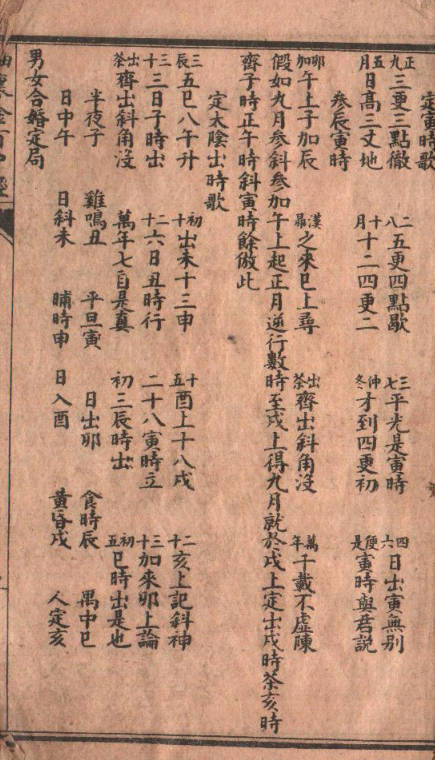 定寅時歌
正九三更三點徹 二八五更四點歇 三七平光是寅時 四六日出寅無别
五月日高三丈地 十月十二四更二 仲冬才到四更初 便是寅時與君説
參辰寅時
卯加午上子加辰 漢之來巳上尋 出茶齊出斜角没 萬年千載不虚陳
假如九月參斜參加午上起正月逆行數時至戌上得九月就於戌上定出戌時茶亥時
齊子時正午時斜寅時餘倣此
定太陰出時歌
三辰五巳八午升 初十出未十三申 十五酉上十八戌 二十亥上記斜神
二十三日子時出 二十六日丑時行 二十八寅時立 三十加來卯上論
出茶齊出斜角没 萬年七百是真 初三辰時出 初五巳時出是也
半夜子 雞鳴丑 平旦寅 日出卯 食時辰 禺中巳
日中午 日斜未 晡時申 日入酉 黄昏戌 人定亥
男女合婚定局